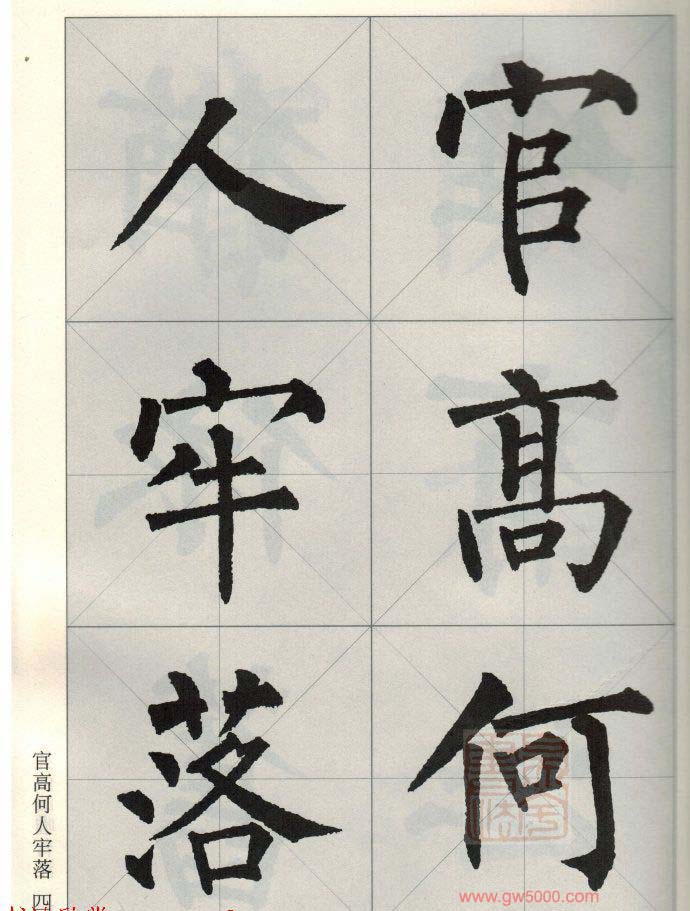 官髙何
人牢落
官高何人牢落 四
www.gw5000.com